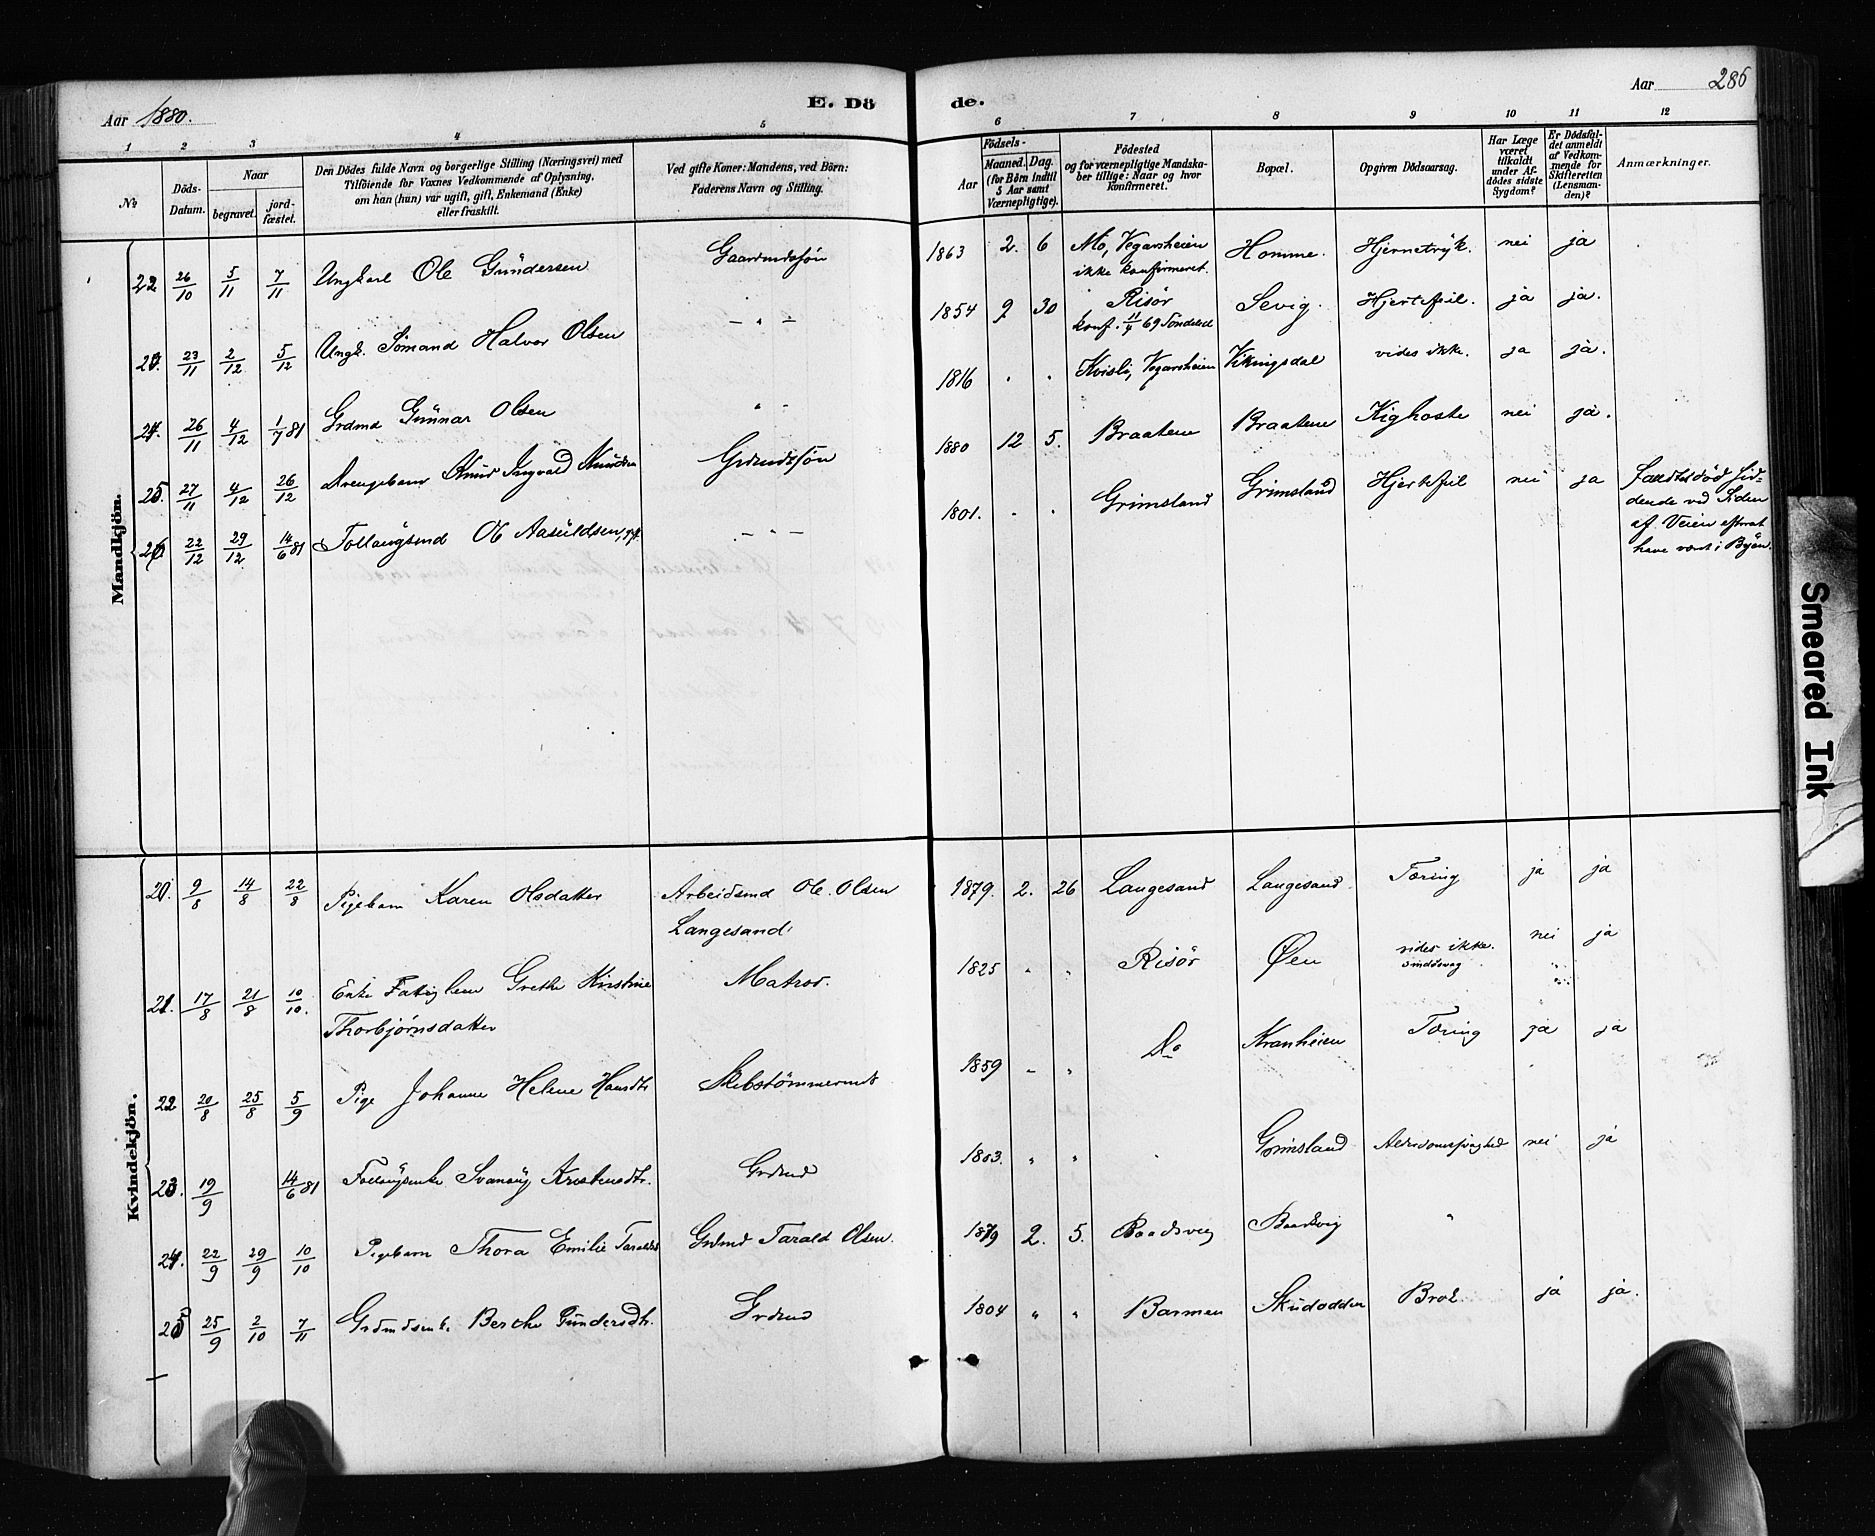 Aar 1880.
E. Dö
de.
Aar 286
1 2 3 4 5 6 7 8 9 10 11 12
No
Döds-
Datum.
Naar
begravet.
jord-
fæstet.
Den Dödes fulde Navn og borgerlige Stilling (Næringsvei) med
Tilföiende for Voxnes Vedkommende af Oplysning,
om han (hun) var ugift, gift, Enkemand (Enke)
eller fraskilt.
Ved gifte Koner: Mandens, ved Börn:
Faderens Navn og Stilling.
Födsels-
Aar
Maaned. Dag.
(for Börn indtil
5 Aar samt
Værnepligtige).
Födested
og for værnepligtige Mandska-
ber tillige: Naar og hvor
Konfirmeret.
Bopæl.
Opgiven Dödsaarsag.
Har Læge
været
tilkaldt
under Af-
dödes sidste
Sygdom?
Er Dödsfal-
det anmeldt
af Vedkom-
mende for
Skifteretten
(Lensman-
den)?
Anmærkninger.
Mandkjön.
22 26/10 5/11 7/11 Ungkarl Ole Gundersen Gaardmdssön 1863 2. 6 Mo, Vegarsheien Homme. Hjernetryk. nei ja
ikke konfirmeret.
23. 23/11 2/12 5/12 Ungk. Sömand Halvor Olsen - " - 1854 9 30 Risör Sevig. Hjertefeil. ja ja.
konf. 11/4 69 Söndeled
24. 26/11 4/12 1/7 81 Grdmd Gunnar Olsen " - 1816 . . Kvisli, Vegarsheien Vikingsdal vides ikke. ja ja.
25. 27/11 4/12 26/12 Drengebarn Knud Ingvald Knudsen Grdmdssön 1880 12 5. Braatene Braatene Kighoste nei ja.
26 22/12 29/12 14/6 81 Follaugsmd Ole Aasuldsen, gft. - " - 1801. . . Grimsland Grimsland Hjertefeil nei ja Fandtes död sid-
dende ved Siden
af Veien efterat
have vært i Byen.
Kvindekjön.
20. 9/8 14/8 22/8 Pigebarn Karen Olsdatter Arbeidsmd Ole Olsen 1879. 2. 26 Langesand Langesand. Tæring ja ja
Langesand.
21. 17/8 21/8 10/10. Enke Fatiglem Grethe Kirstine Matros. 1825 " " Risör Øen vides ikke. nei ja
Thorbjørnsdatter
22 20/8 25/8 5/9 Pige Johanne Helene Hansdtr Skibstömmermd 1859 " " Do Kranheien Tæring ja ja
23. 19/9 14/6 81 Follaugsenke Svanaug Kristensdtr. Grdmd 1803. " " . Grimsland Alderdomssvaghed nei ja
24. 22/9 29/9 10/10 Pigebarn Thora Emilie Taraldsd Grdmd Tarald Olsen. 1879 2. 5. Baadsvig Baadsvig "
25 25/9 2/10 7/11 Grdmdsenke Berthe Gundersdtr. Grdmd 1804 " " Barmen Skudodden Brok ja ja.
Smeared Ink